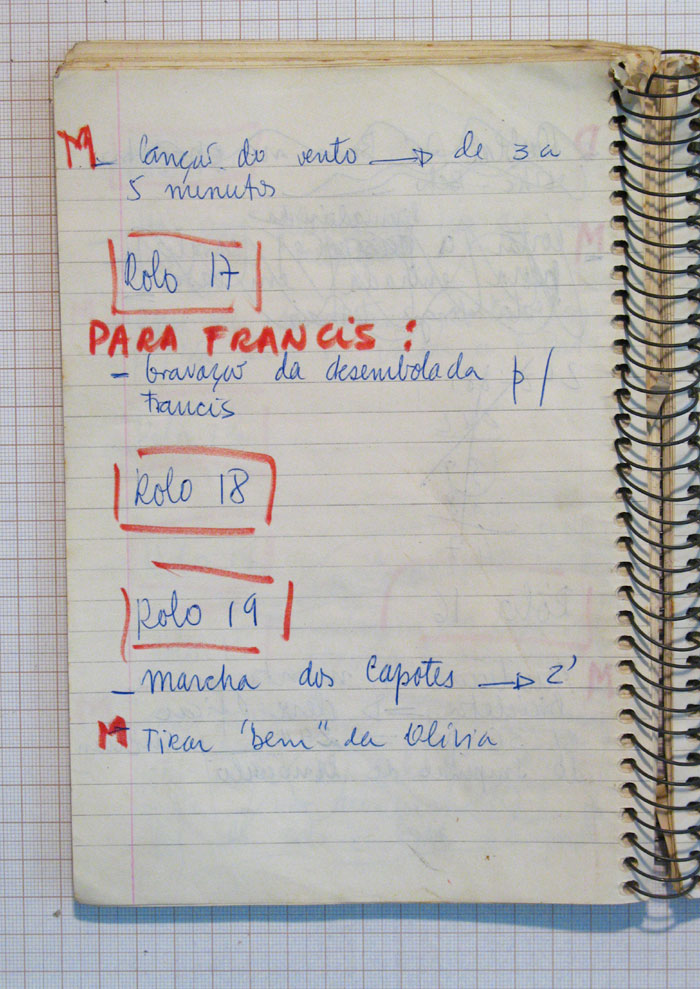 M - Canção do vento → de 3 a
5 minutos
Rolo 17
PARA FRANCIS:
- Gravação da desembolada p/
Francis
Rolo 18
Rolo 19
- Marcha dos Capotes → 2'
M - Tirar "bem" da Olívia